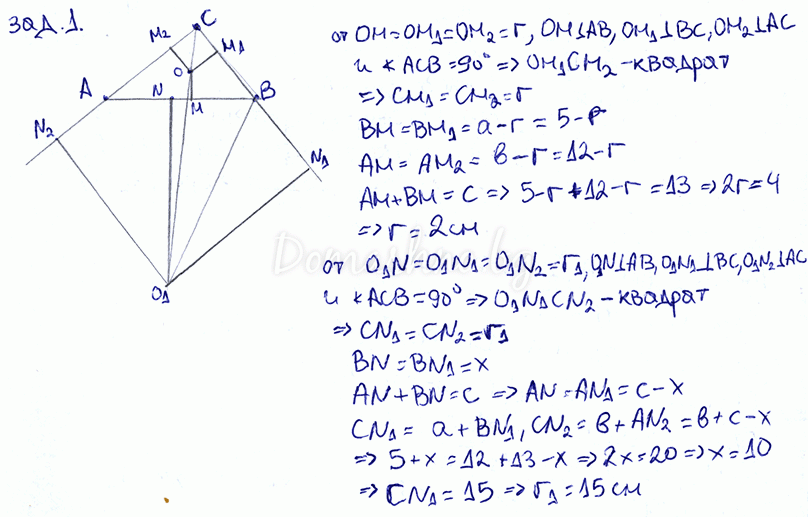 зад.1.
C
M2
M1
O
A
N
M
B
N2
N1
O1
от OM=OM1=OM2=r, OM⊥AB, OM1⊥BC, OM2⊥AC
и ∢ACB=90° => OM1CM2-квадрат
=> CM1=CM2=r
BM=BM1=a-r=5-r
AM=AM2=b-r=12-r
AM+BM=c => 5-r+12-r=13 => 2r=4
=> r=2см
от O1N=O1N1=O1N2=r1, O1N⊥AB, O1N1⊥BC, O1N2⊥AC
и ∢ACB=90° => O1N1CN2-квадрат
=> CN1=CN2=r1
BN=BN1=x
AN+BN=c => AN=AN1=c-x
CN1=a+BN1, CN2=b+AN2=b+c-x
=> 5+x=12+13-x => 2x=20 => x=10
=> CN1=15 => r1=15см